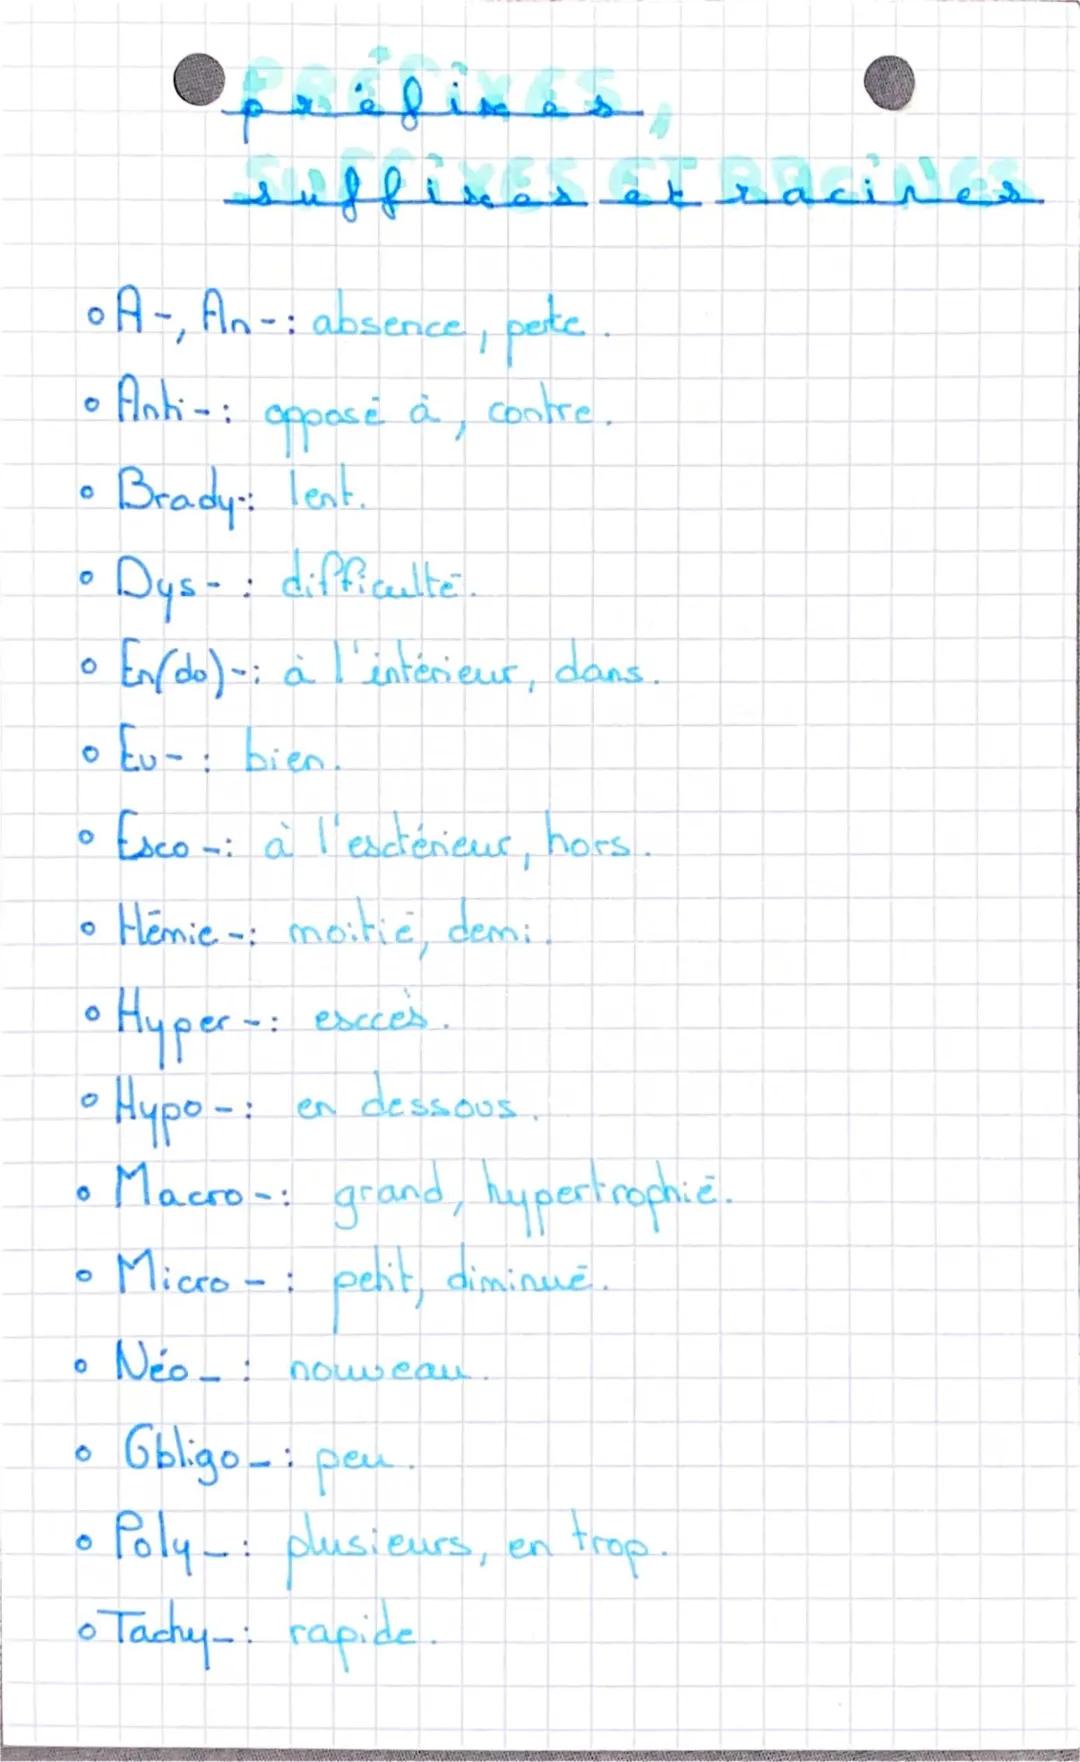 préfixes,
suffixes et racines
A-, An-: absence, perte.
Anti-: opposé à, contre.
Brady-: lent.
Dys-: difficulté.
En(do)-: à l'intérieur, dans.
Eu-: bien.
Exo-: à l'extérieur, hors.
Hémie-: moitié, demi.
Hyper-: excès.
Hypo-: en dessous.
Macro-: grand, hypertrophié.
Micro-: petit, diminué.
Néo-: nouveau.
Obligo-: peu.
Poly-: plusieurs, en trop.
Tachy-: rapide.